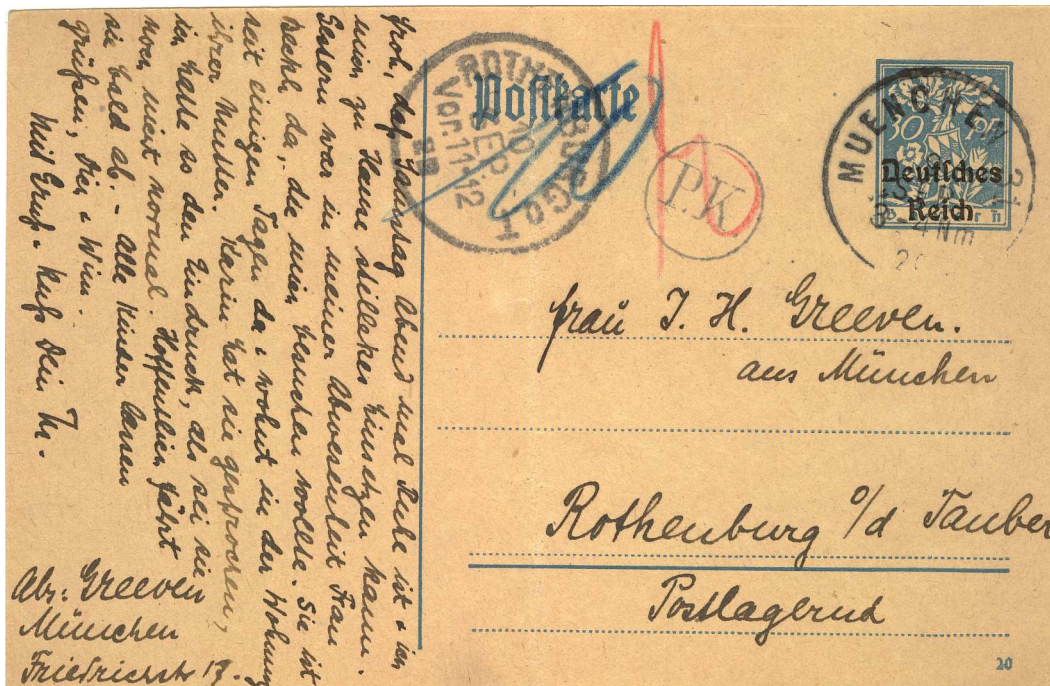 froh, daß Samstag Abend mal Ruhe ist u. ich
mich zu Hause stilleks hinsetzen kann.
Gestern war in meiner Abwesenheit Frau
da, die mich besuchen wollte. Sie ist
seit einigen Tagen da u. wohnt in der Wohnung
ihrer Mutter. Karin hat sie gesprochen,
ich hatte so den Eindruck, als sei sie
noch nicht normal. Hoffentlich fährt
sie bald ab. - Alle Kinder lassen
grüßen, Dich u. Wim.
Mit Gruß u. Kuß Dein Th.
Abs: Greeven
München
Friedrichstr 17.
Postkarte
ROTHENBURG
10
SEP.
Vor. 11-12
I
P.K
MUENCHEN
3-4 Nm
30
Deutsches
Reich
Frau J. H. Greeven.
aus München
Rothenburg o/d Tauber
Postlagernd
20